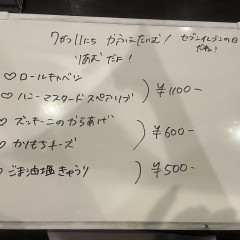 7がつ11にち かようはたいむ! セブンイレブンの日
だね!
りあむ だよ!
♡ ロールキャベツ
♡ ハニーマスタードスペアリブ
¥1100-
♡ ズッキーニのからあげ
♡ かりもちチーズ
¥600-
♡ ごま油塩きゅうり
¥500-